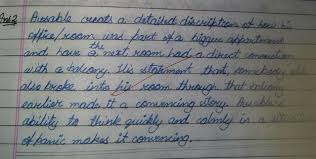 Ans 2 Ausable creats a detailed discription of how his
office/room was part of a bigger appartment
and how the next room had a direct connection
with a balcony. His statement that somebody
also broke into his room through that balcony
earlier made it a convencing story. Ausable's
ability to think quickly and calmly in a
of panic makes it convencing.